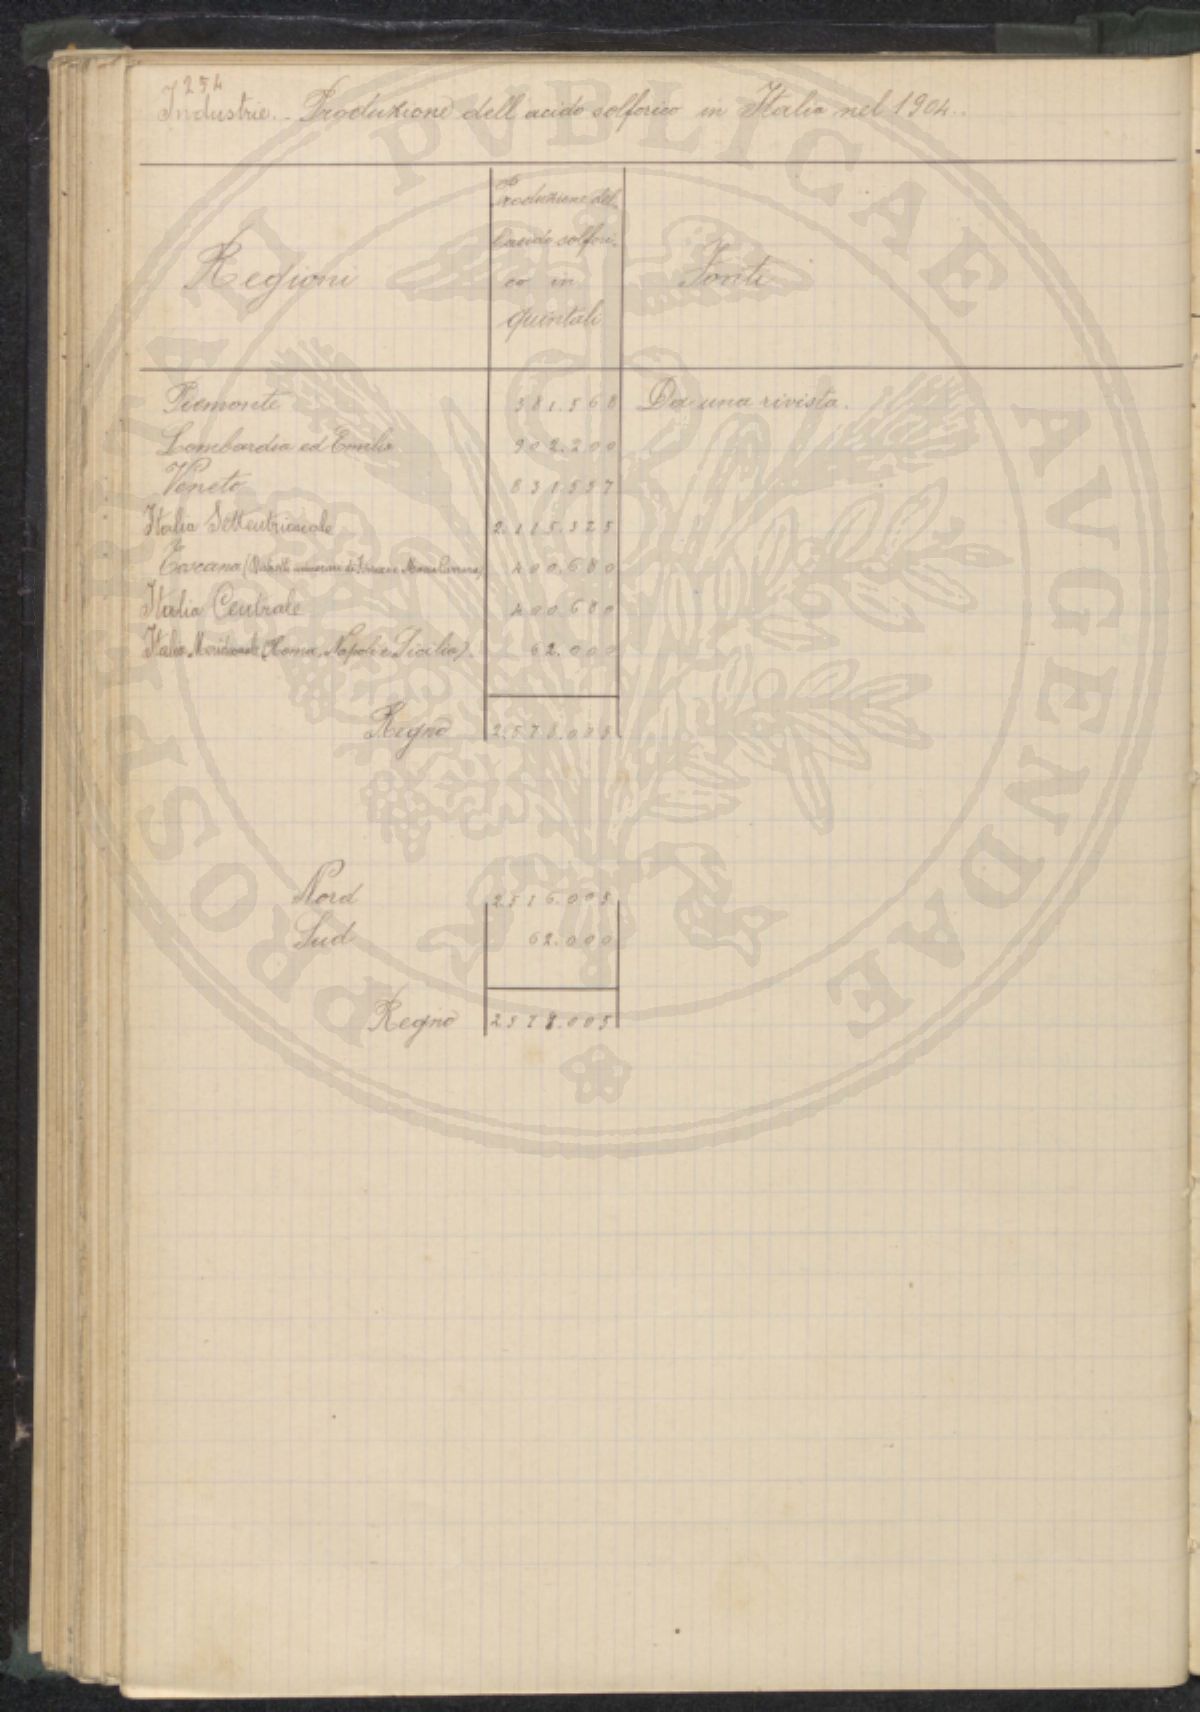 254
Industrie. - Produzione dell'acido solforico in Italia nel 1904.
Regioni
Produzione del-
l'acido solfori-
co in
quintali
Fonti
Piemonte 381.568 Da una rivista.
Lombardia ed Emilia 902.200
Veneto 831.557
Italia Settentrionale 2.115.325
Toscana (Distretti minerari di Firenze e Massa Carrara) 400.680
Italia Centrale 400.680
Italia Meridionale (Roma, Napoli e Sicilia). 62.000
Regno 2.578.005
Nord 2516.005
Sud 62.000
Regno 2578.005
PROSPERITATI PVBLICAE AVGENDAE